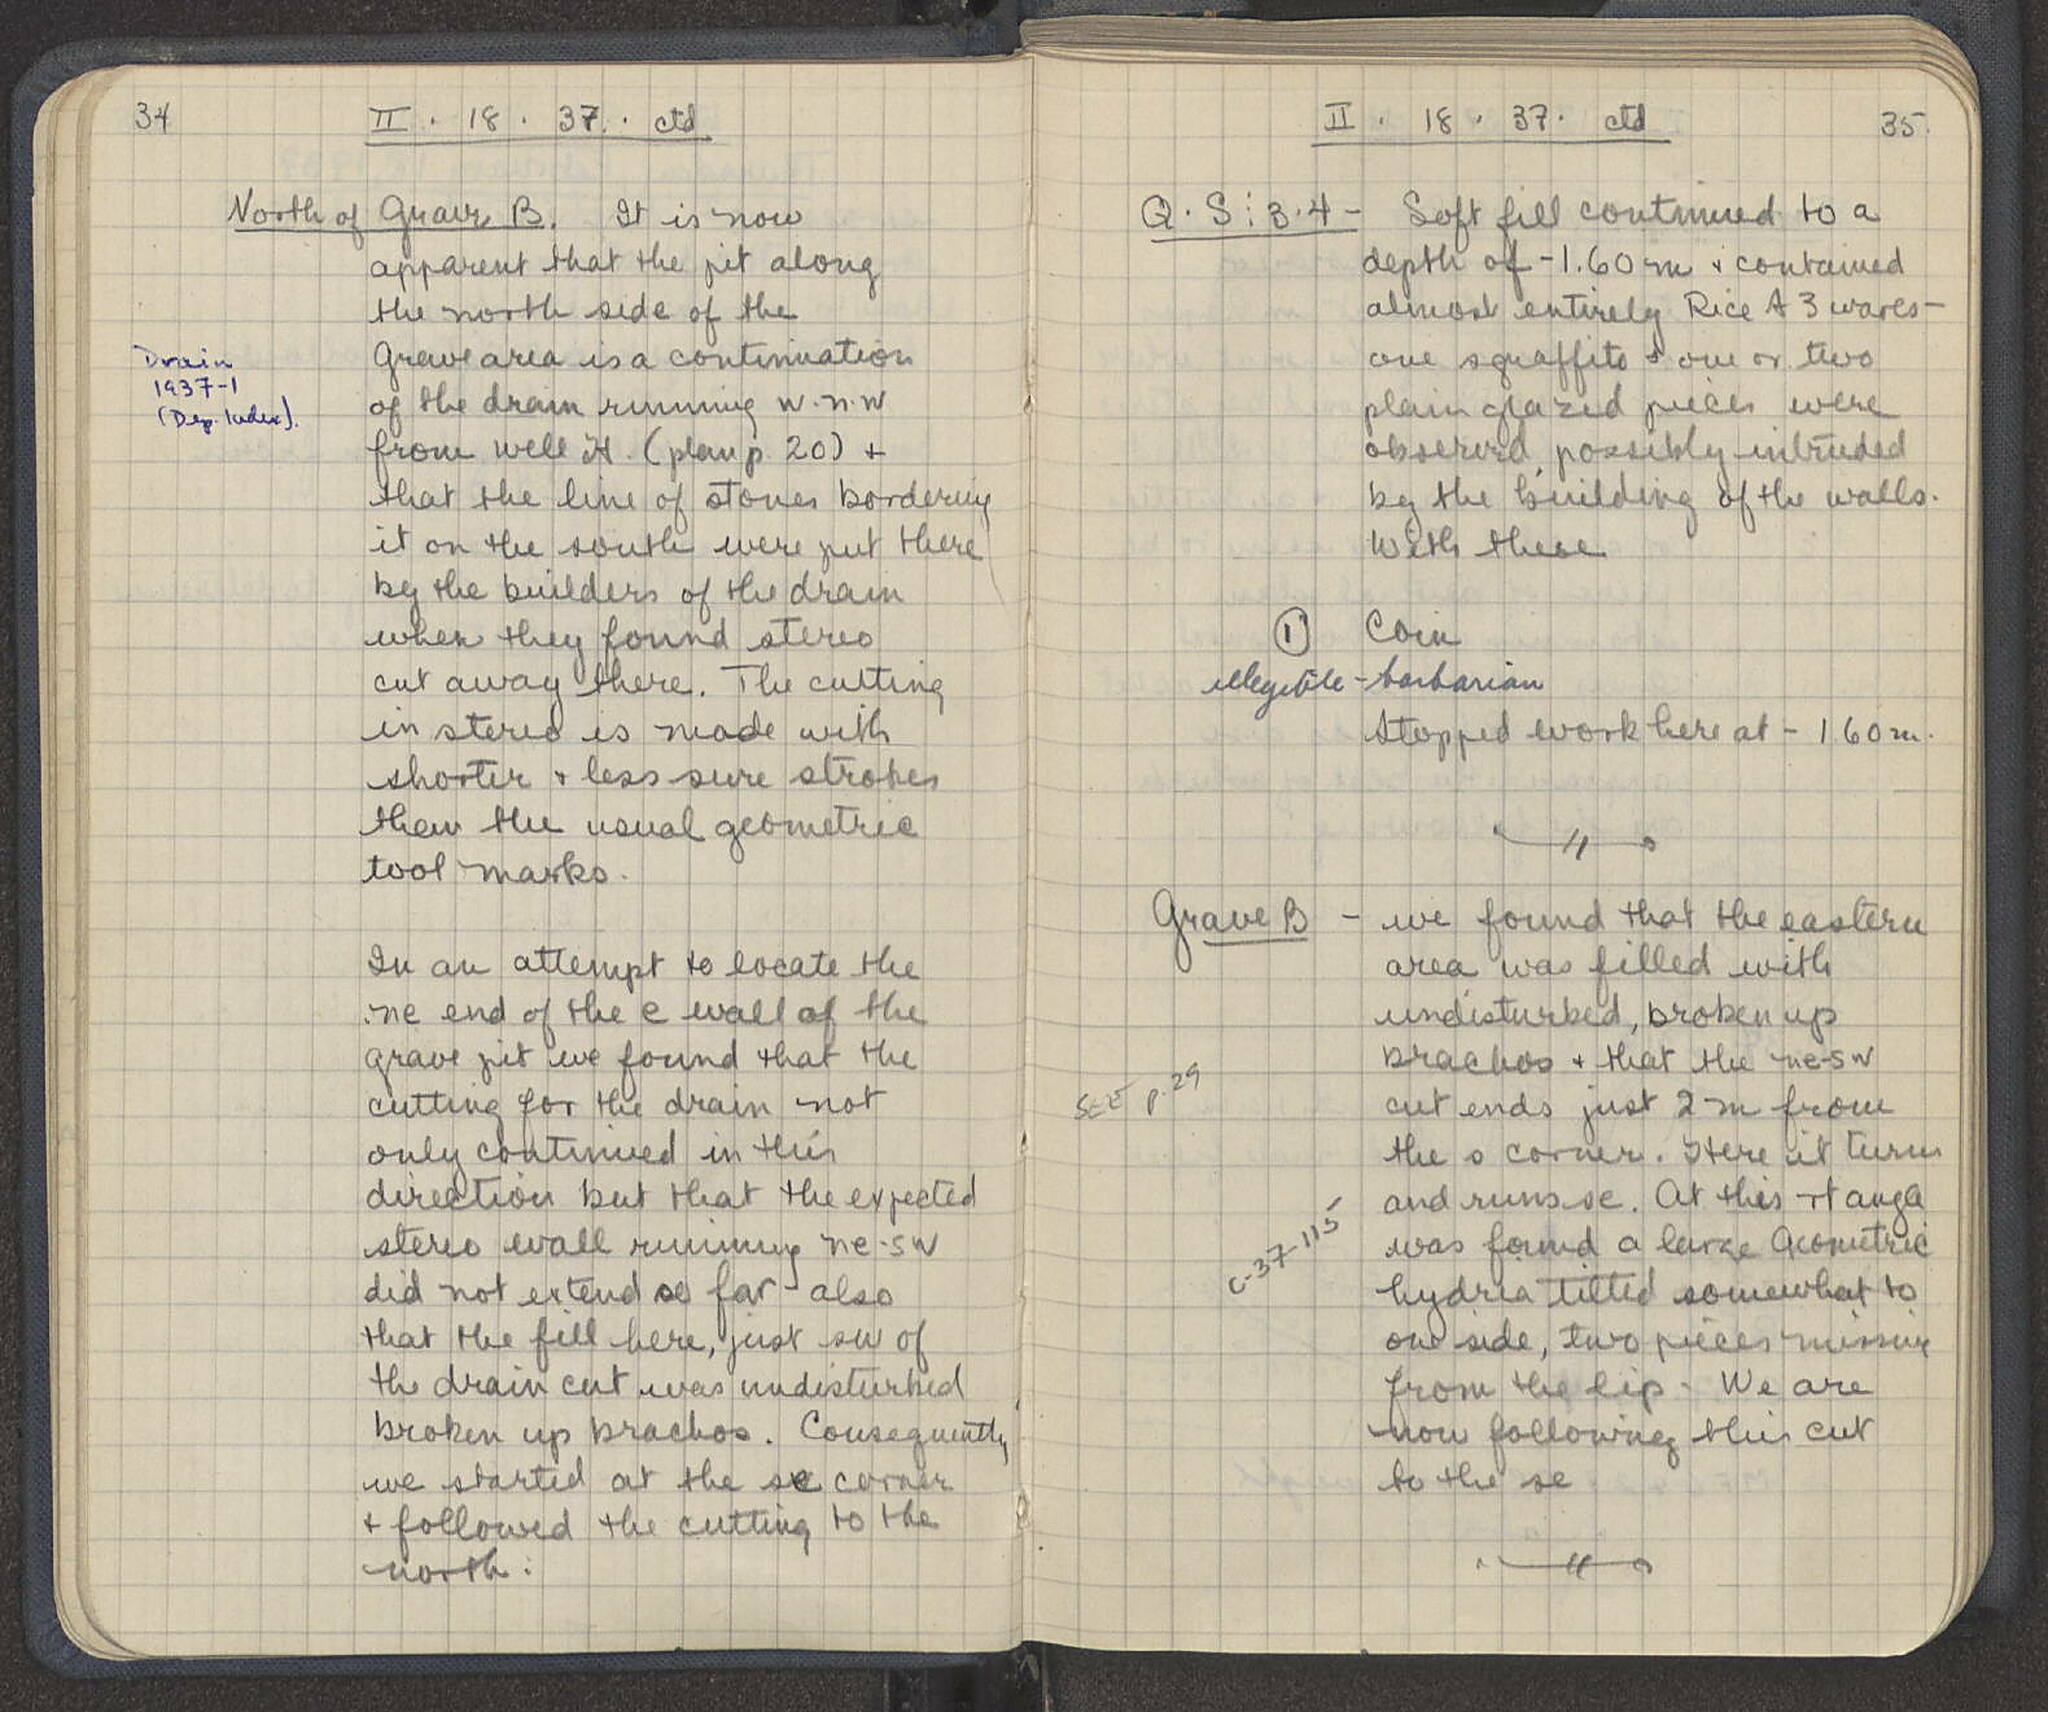 34
II . 18 . 37 . ctd
North of Grave B. It is now
apparent that the pit along
the north side of the
Grave area is a continuation
Drain
1937-1
(Dep. Index).
of the drain running w.n.w
from well H (plan p. 20) +
that the line of stones bordering
it on the south were put there
by the builders of the drain
when they found stereo
cut away there. The cutting
in stereo is made with
shorter + less sure strokes
than the usual geometric
tool marks.
In an attempt to locate the
ne end of the e wall of the
grave pit we found that the
cutting for the drain not
only continued in this
direction but that the expected
stereo wall running ne-sw
did not extend so far - also
that the fill here, just sw of
the drain cut was undisturbed
broken up brachos. Consequently
we started at the se corner
+ followed the cutting to the
north:
II . 18 . 37 . ctd
35.
Q.S: 3.4 - Soft fill continued to a
depth of -1.60m + contained
almost entirely Rice A 3 wares -
one sgraffito + one or two
plain glazed pieces were
observed, possibly intruded
by the building of the walls.
With these
1 Coin
illegible - barbarian
Stopped work here at - 1.60m.
Grave B - we found that the eastern
area was filled with
undisturbed, broken up
brachos + that the ne-sw
SEE p.29
cut ends just 2m from
the s corner. Here it turns
and runs se. At this rt angle
C-37-115
was found a large Geometric
hydria tilted somewhat to
one side, two pieces missing
from the lip - We are
now following this cut
to the se